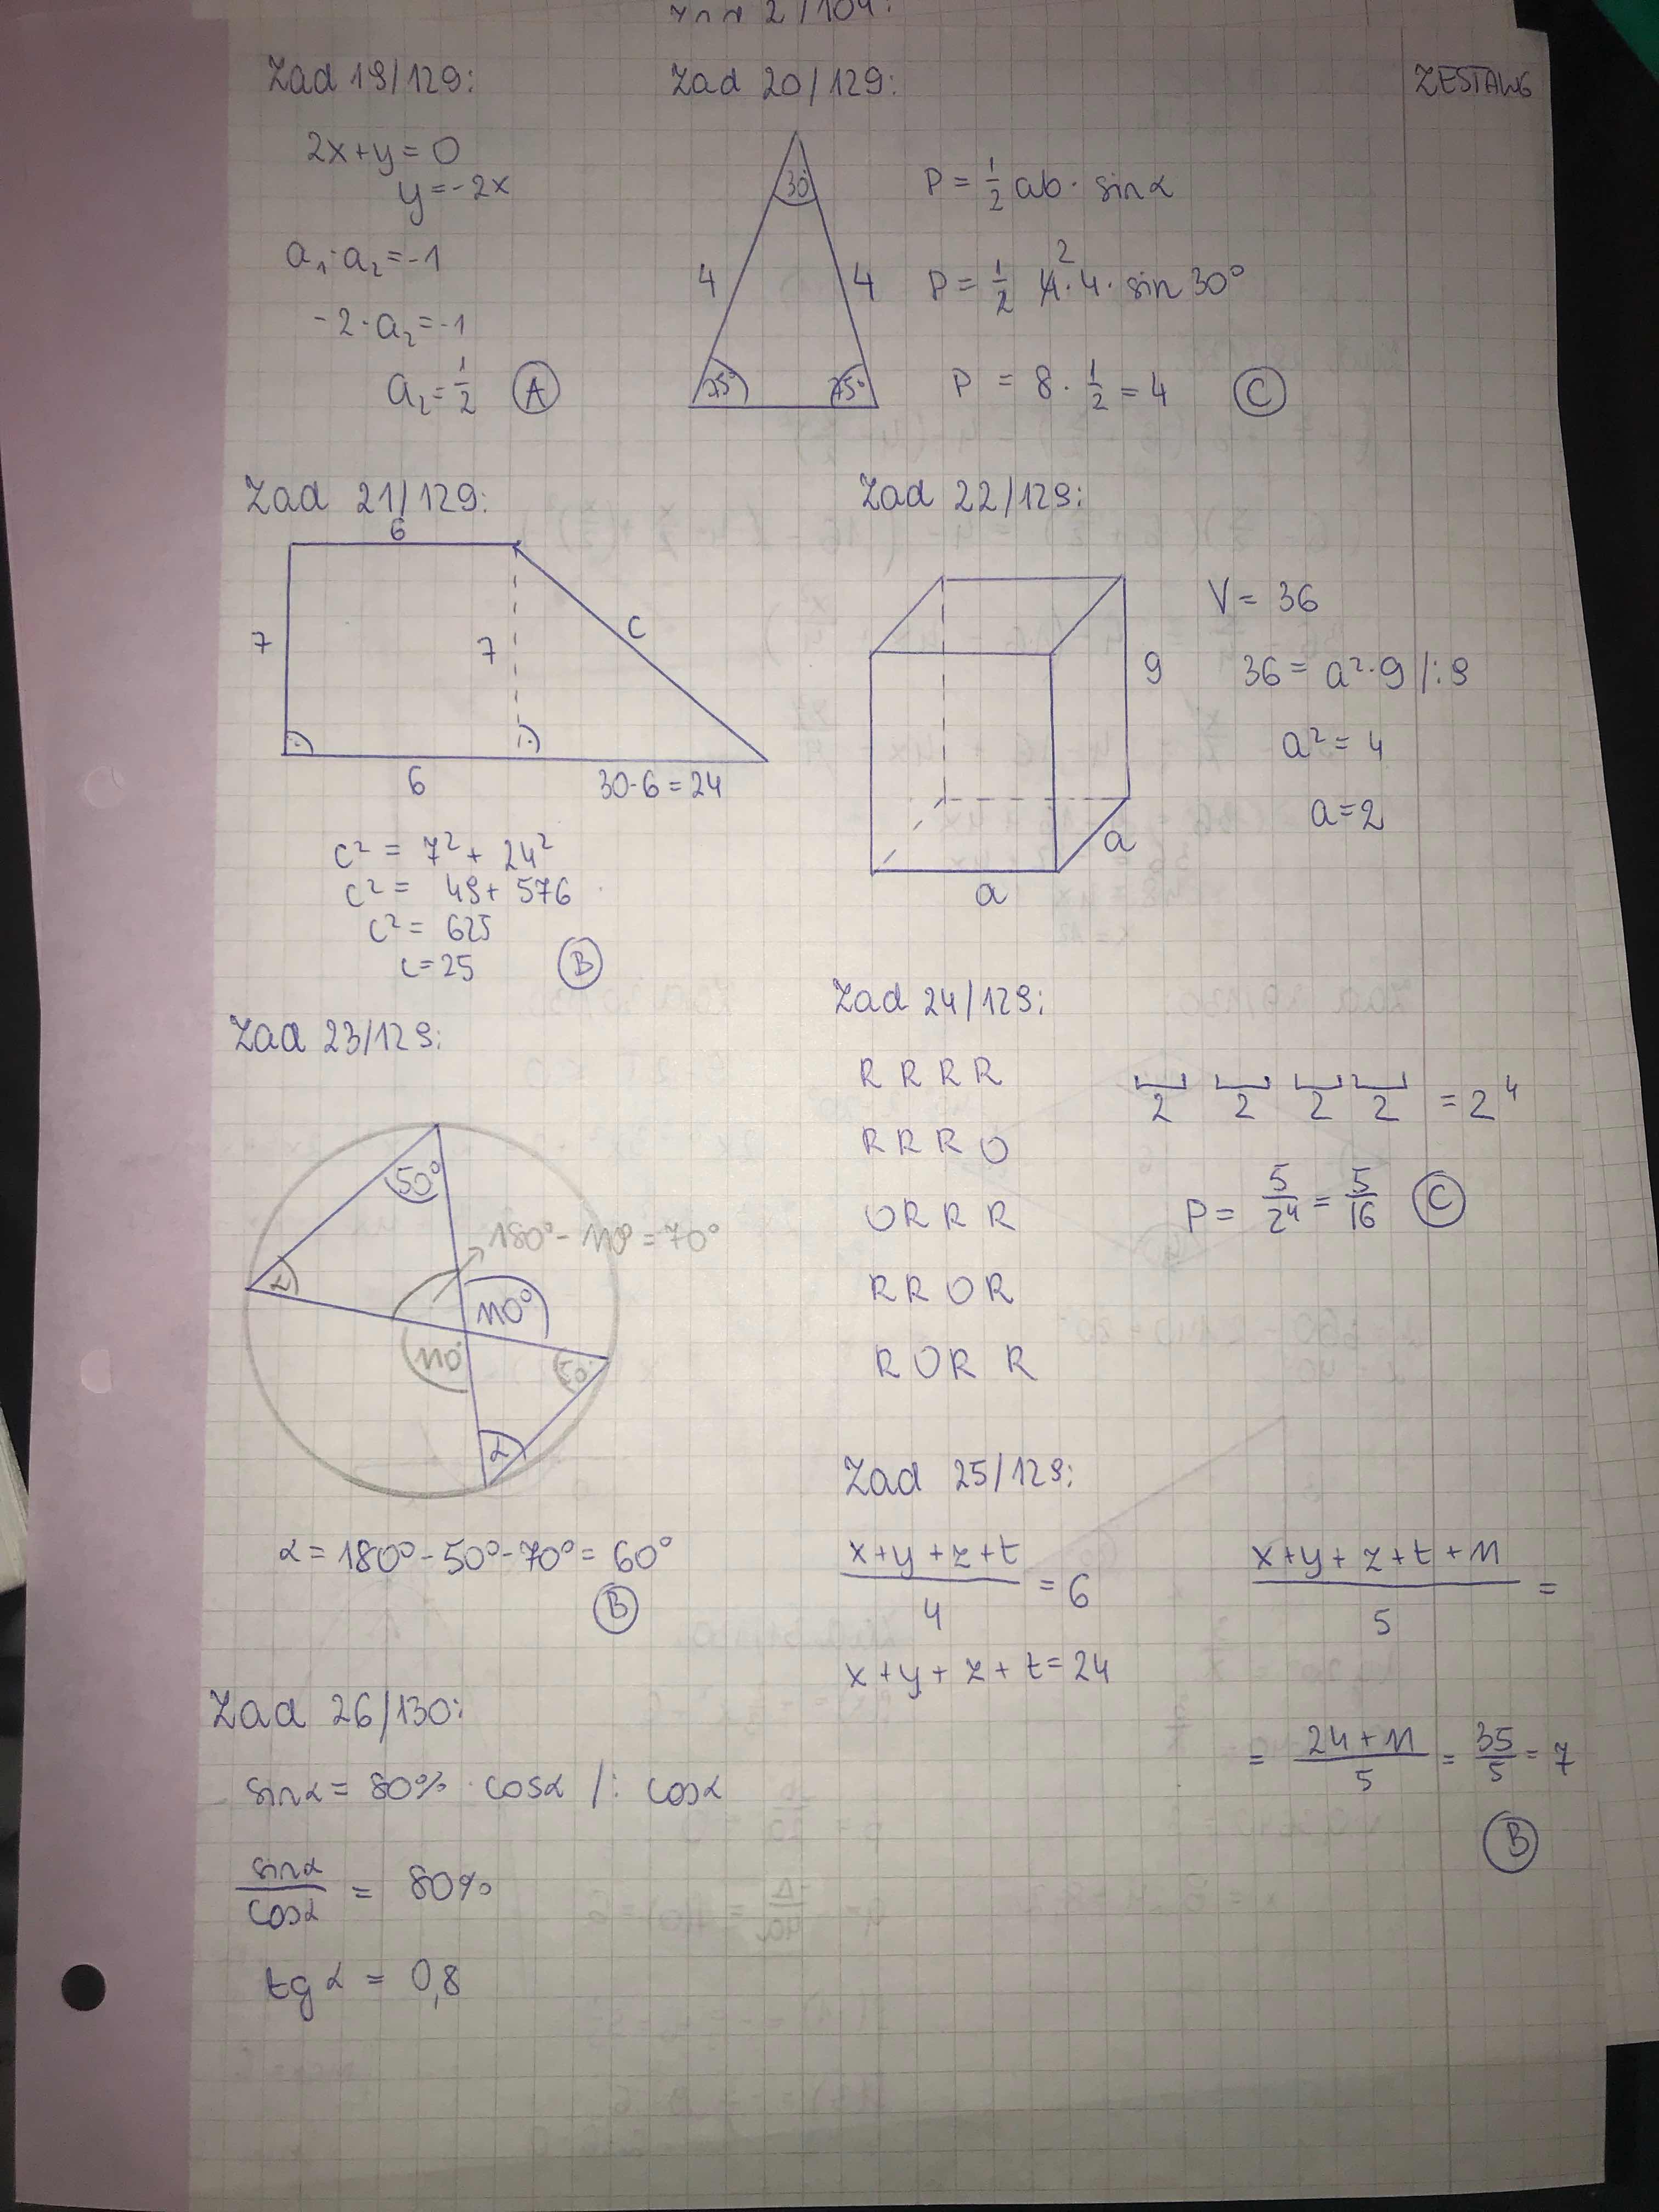 Zad 2/104:
ZESTAW 6
Zad 19/129:
2x+y=0
y=-2x
a₁·a₂=-1
-2·a₂=-1
a₂=1/2 A
Zad 20/129:
30°
4 4
75° 75°
P = 1/2 ab · sinα
P = 1/2 4·4· sin 30°
2
P = 8 · 1/2 = 4 C
Zad 21/129:
6
7 7 c
6 30-6=24
c² = 7² + 24²
c² = 49+ 576
c² = 625
c=25 B
Zad 22/129:
9
a
a
V = 36
36 = a²·9 /:9
a² = 4
a=2
Zad 23/129:
50°
180° - 110° = 70°
α 110°
110° 50°
α
α = 180° - 50° - 70° = 60°
B
Zad 24/129:
R R R R
R R R O
O R R R
R R O R
R O R R
2 2 2 2 = 2⁴
P = 5/2⁴ = 5/16 C
Zad 25/129:
x+y+z+t/4 = 6
x+y+z+t=24
x+y+z+t+11/5 =
= 24+11/5 = 35/5 = 7
B
Zad 26/130:
sinα = 80% · cosα /: cosα
sinα/cosα = 80%
tgα = 0,8